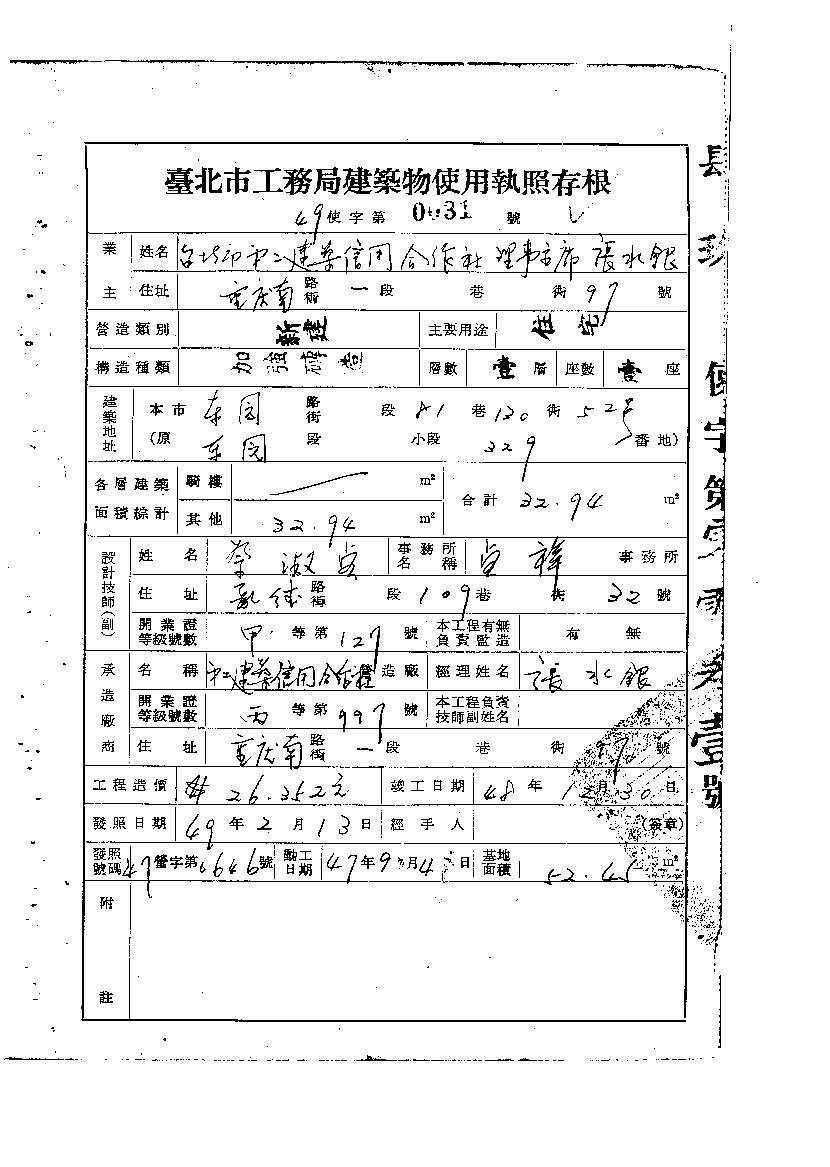 臺北市工務局建築物使用執照存根
49使字第 0031 號
業主 姓名 台北市第二建築信用合作社 理事主席 張水銀
住址 重庆南 路街 一段 巷 街 97 號
營造類別 新建 主要用途 住宅
構造種類 加強磚造 層數 壹層 座數 壹座
建築地址 本市 东园 路街 段 81 巷 130 街 52号
(原 东园 段 小段 329 番地)
各層建築面積綜計 騎樓 m² 合計 32.94 m²
其他 32.94 m²
設計技師(副) 姓名 蔡淑貞 事務所名稱 貞祥 事務所
住址 承德 路街 段 109 巷 街 32 號
開業證等級號數 甲 等第 127 號 本工程有無負責監造 有 無
承造廠商 名稱 建築信用合作社 營造廠 經理姓名 張水銀
開業證等級號數 丙 等第 997 號 本工程負責技師副姓名
住址 重庆南 路街 一段 巷 街 97 號
工程造價 26.352元 竣工日期 48年 12月30日
發照日期 49年2月13日 經手人 (簽章)
發照號碼 47營字第0646號 動工日期 47年9月4日 基地面積 52.45 m²
附註
使字第零零叁壹號